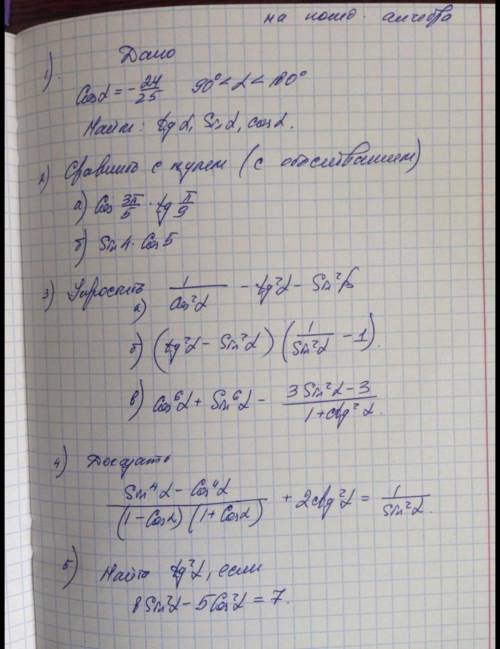 на понд. алгебра
1). Дано
Cos α = -24/25 90° < α < 180°
Найти: tg α, Sin α, cos α.
2) Сравнить с нулем (с обоснованием)
а) Cos 3π/5 · tg π/9
б) Sin 4 · Cos 5
3) Упростить
а) 1/Cos²α - tg²α - Sin²β
б) (tg²α - Sin²α) (1/Sin²α - 1).
в) Cos⁶α + Sin⁶α - (3 Sin²α - 3)/(1 + ctg²α)
4) Доказать
(Sin⁴α - Cos⁴α)/((1 - Cos α) (1 + Cos α)) + 2ctg²α = 1/Sin²α.
5) Найти tg²α, если
8 Sin²α - 5 Cos²α = 7.